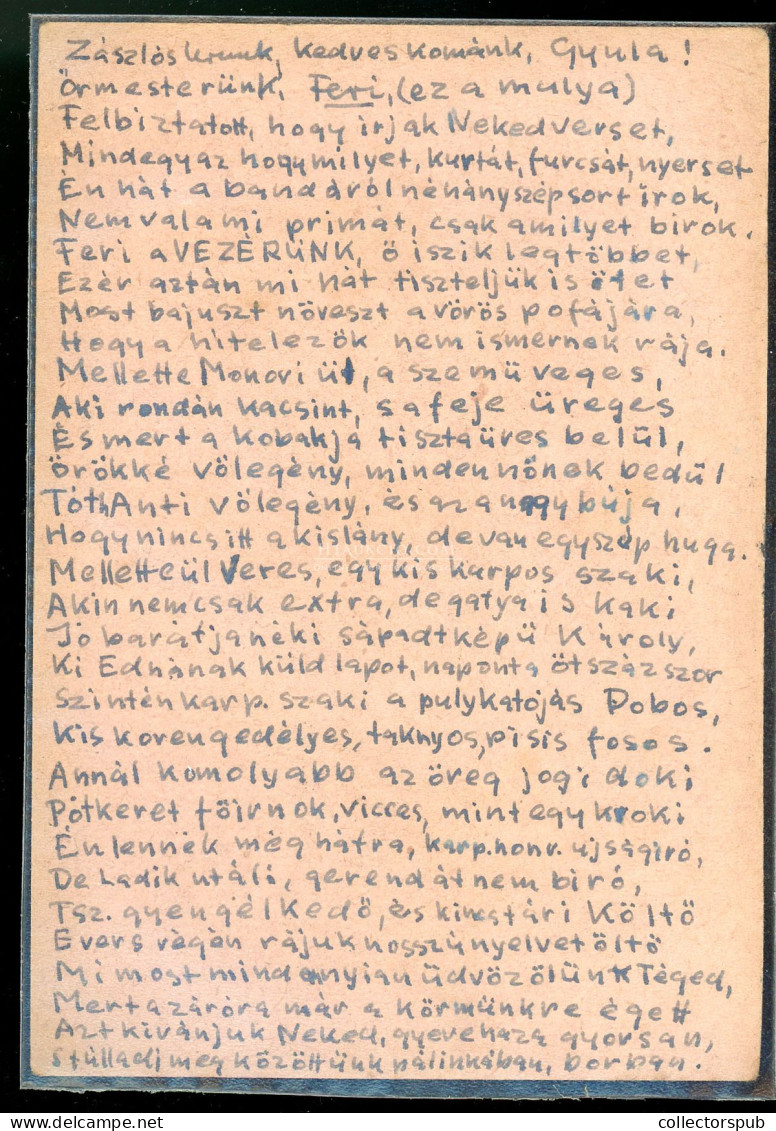 Zászlós krunk, kedves kománk, Gyula!
Örmesterünk, Feri, (ez a mulya)
Felbiztatott, hogy irjak Neked verset,
Mindegy az hogy milyet, kurtát, furcsát, nyerset
Én hát a bandáról néhány szép sort irok,
Nem valami primát, csak amilyet birok.
Feri a VEZÉRÜNK, ö iszik legtöbbet,
Ezér aztán mi hát tiszteljük is ötet
Most bajuszt növeszt a vörös pofájára,
Hogy a hitelezök nem ismernek rája.
Mellette Monori ül, a szemüveges,
Aki rondán kacsint, s a feje üreges
És mert a kobakja tiszta üres belül,
Örökké völegény, minden nönek bedül
Tóth Anti völegény, és az a nagy búja,
Hogy nincs itt a kislány, de van egy szép huga.
Mellette ül Veres, egy kis karpos szaki,
Akin nemcsak extra, de gatya is kaki
Jó barátja néki sápadtképü Károly,
Ki Ednának küld lapot, naponta ötszázszor
Szintén karp. szaki a pulykatojás Dobos,
Kis korengedélyes, taknyos, pisis fosos.
Annál komolyabb az öreg jogi doki
Pótkeret föirnok, vicces, mint egy kroki
Én lennék még hátra, karp. honv. ujságiró,
De Ladik utáli, gerendát nem biró,
Tsz. gyengélkedö, és kincstári Költö
E vers végén rájuk hosszú nyelvet öltö
Mi most mindannyian üdvözölünk Téged,
Mert a záróra már a körmünkre égett
Azt kivánjuk Neked, gyere haza gyorsan,
S tülladj meg közöttünk pálinkában, borban.
HUNGARICANA
collectorspub